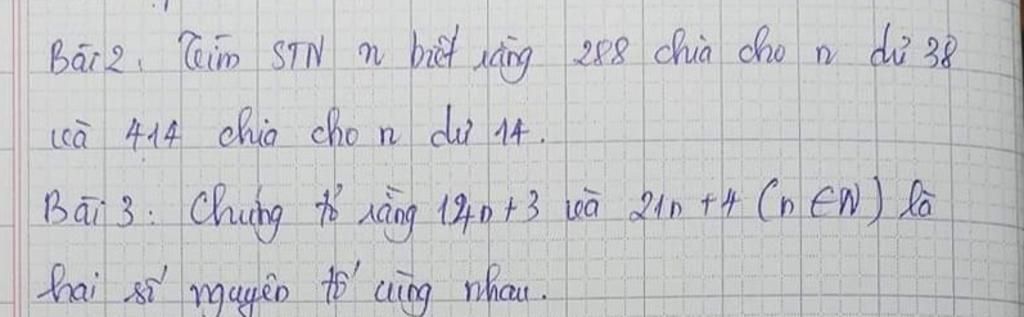 Bài 2. Tìm STN n biết rằng 288 chia cho n dư 38
và 414 chia cho n dư 14.
Bài 3: Chứng tỏ rằng 14n + 3 và 21n + 4 (n ∈ N) là
hai số nguyên tố cùng nhau.